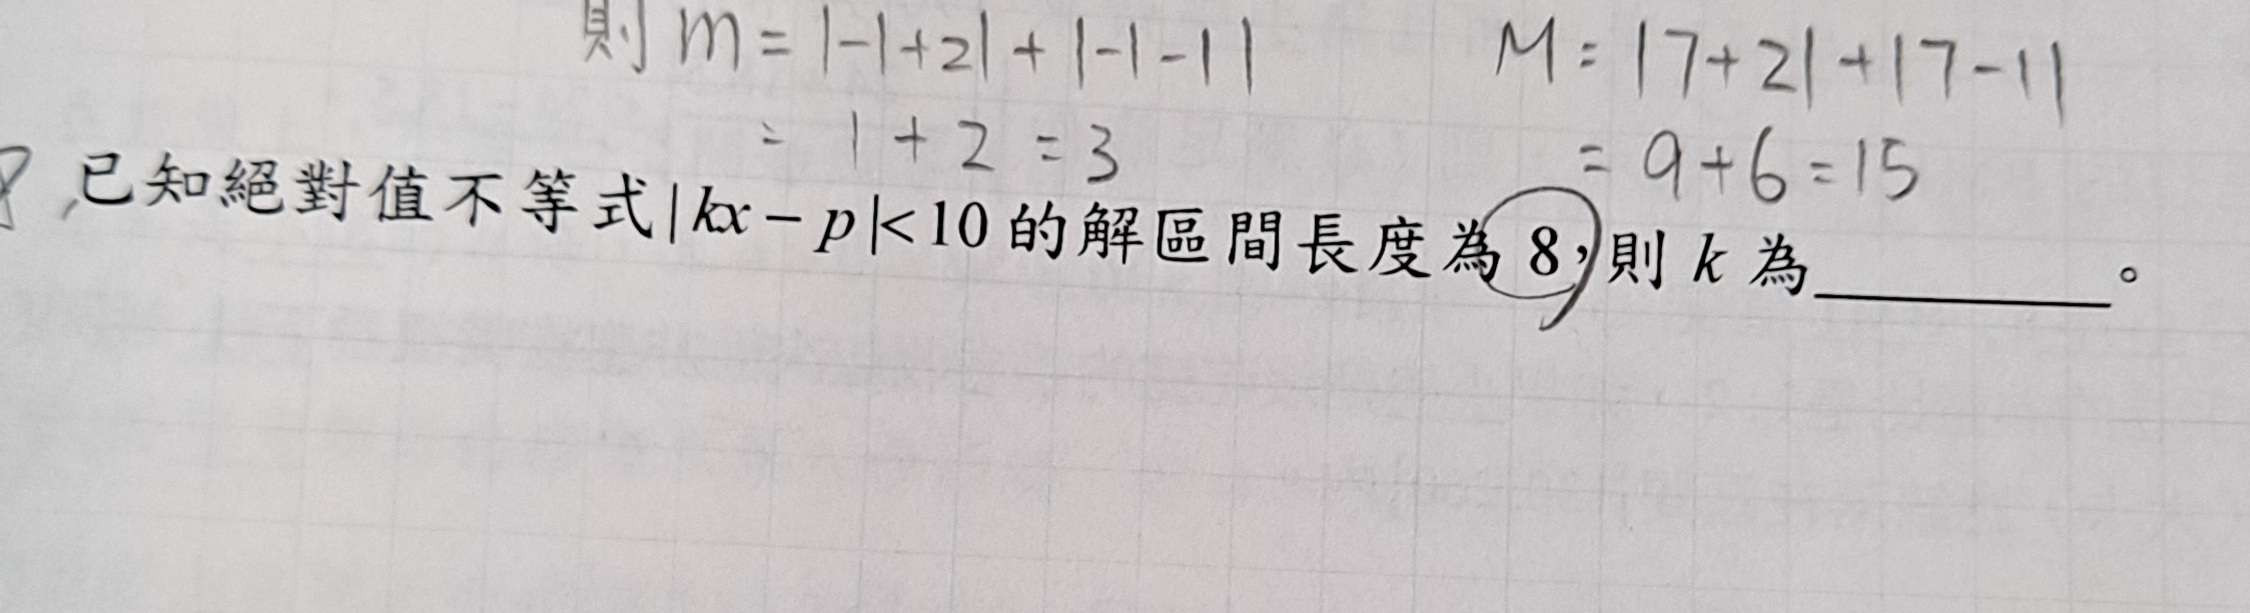 則 m = |-1+2| + |-1-1|
M = |7+2| + |7-1|
= 1 + 2 = 3
= 9+6=15
已知絕對值不等式|kx－p|<10的解區間長度為8，則k為________。